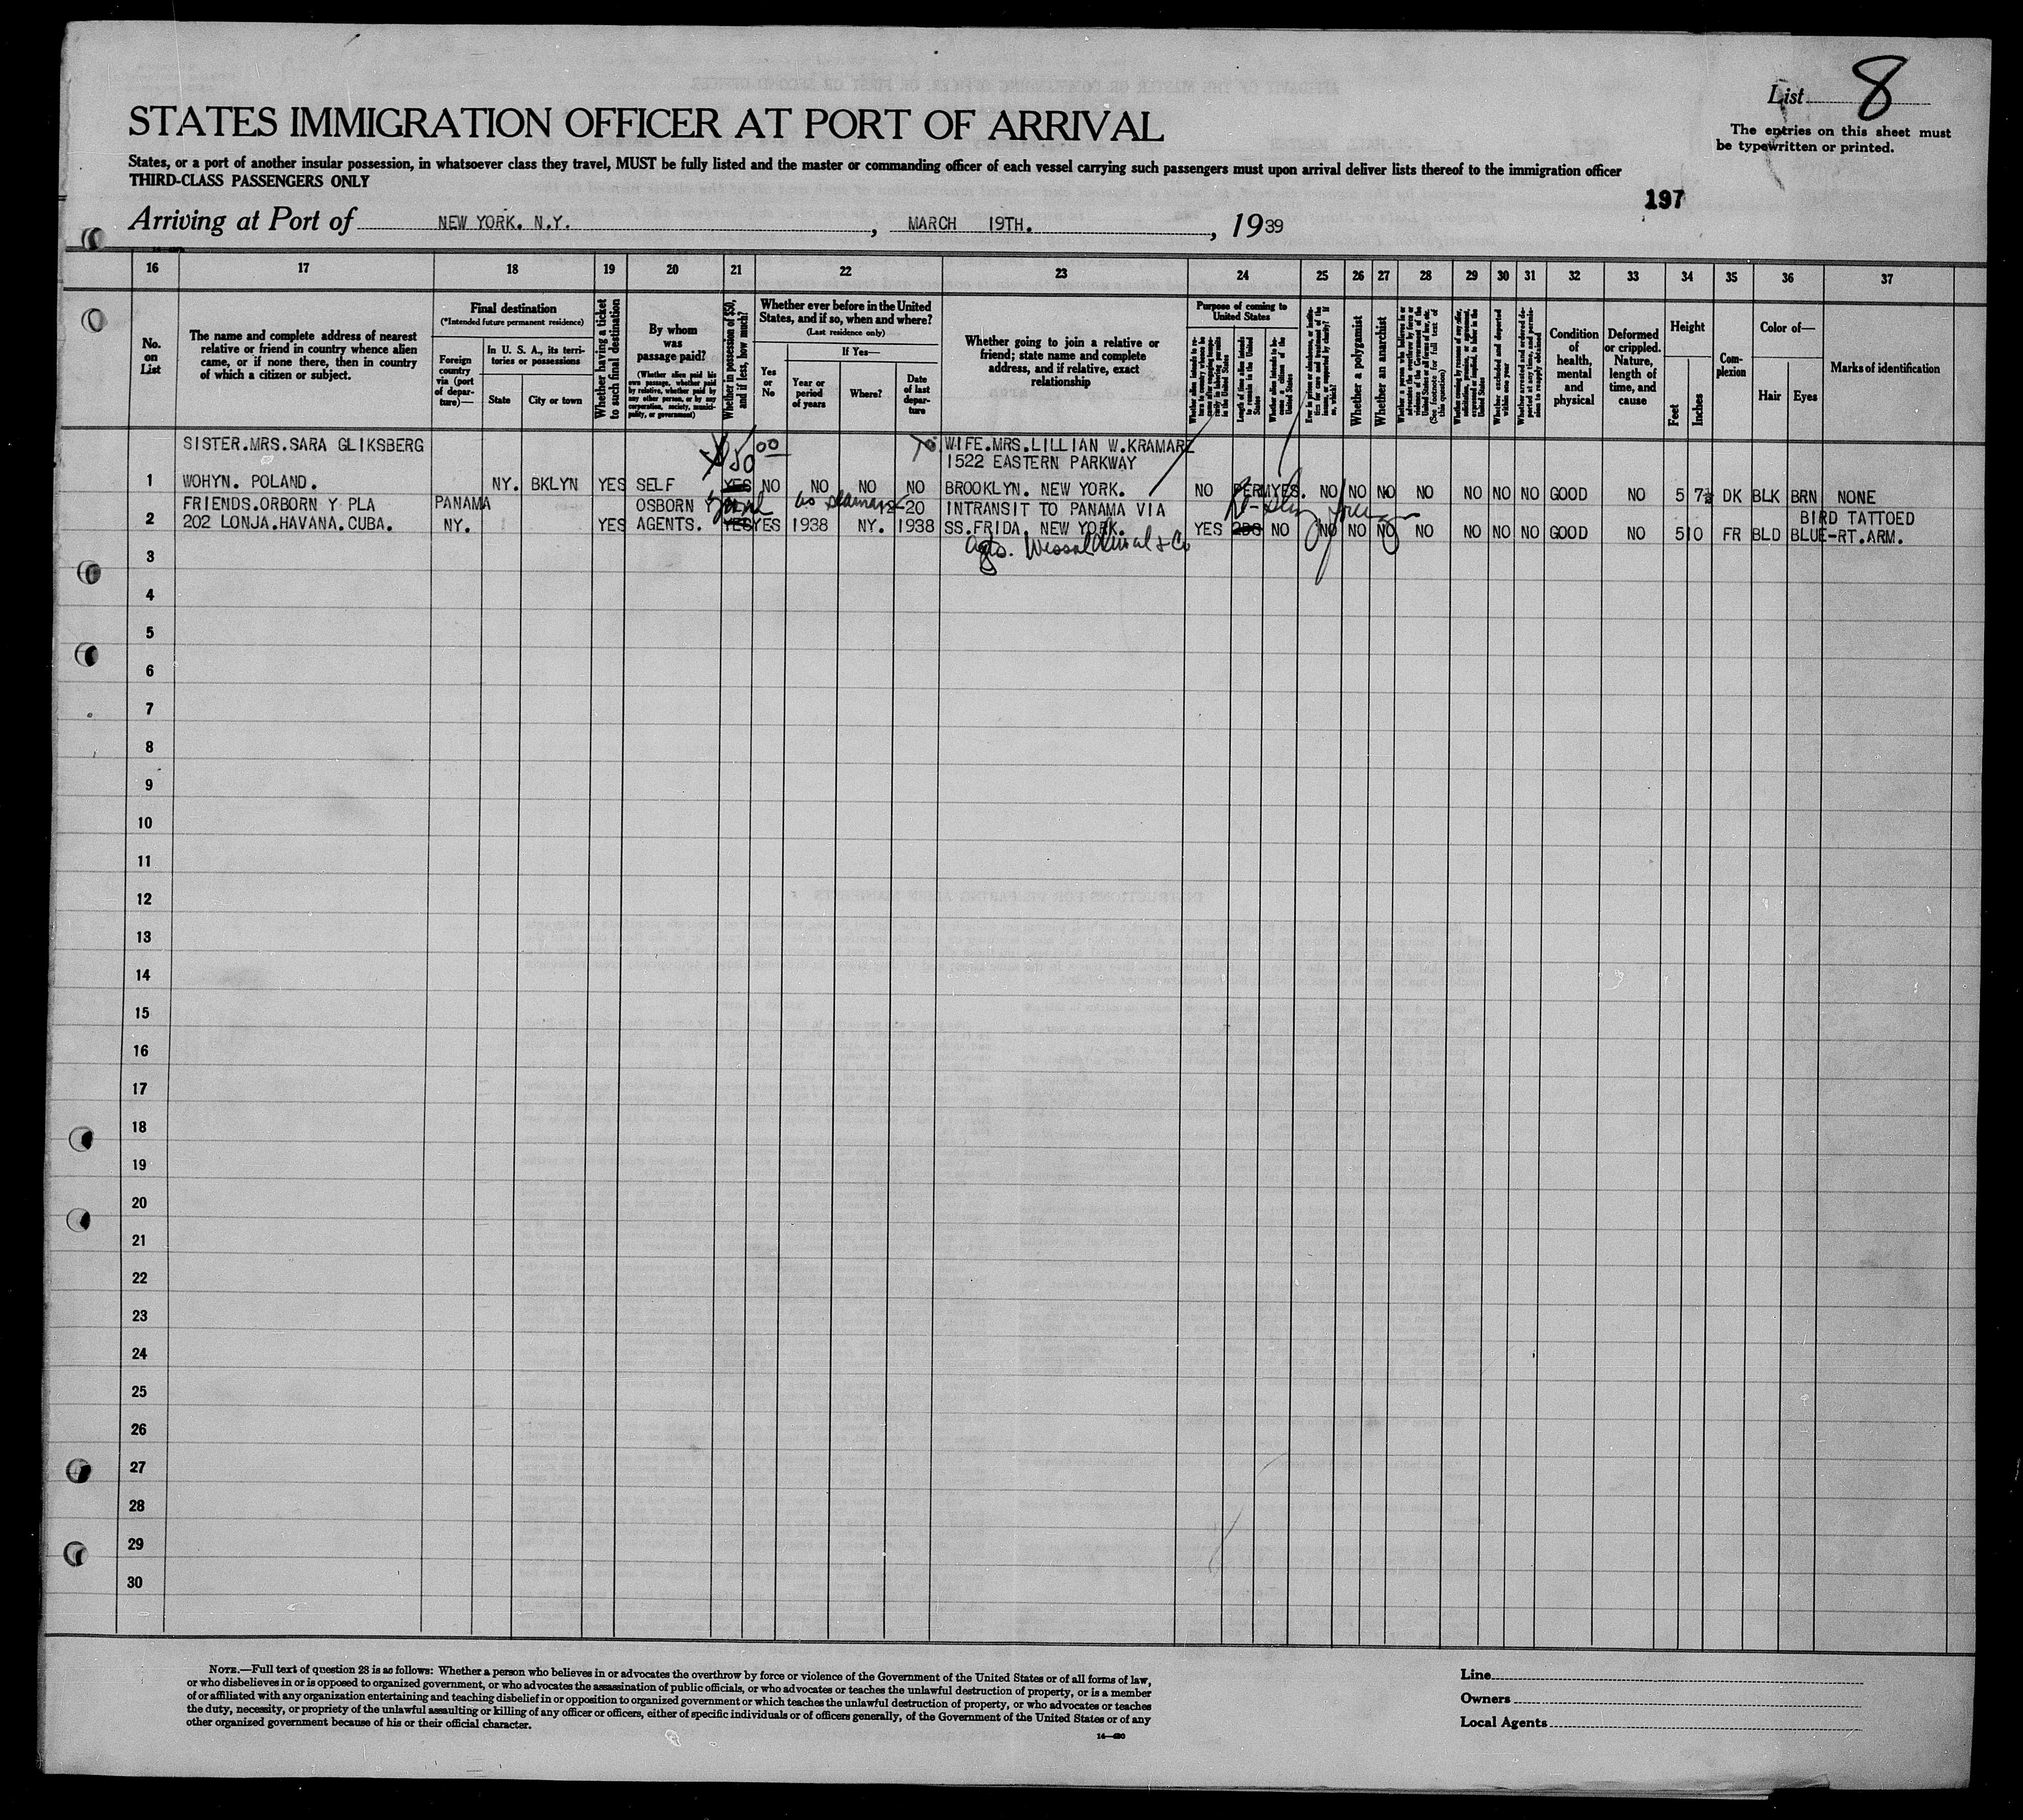 List 8
The entries on this sheet must
be typewritten or printed.
STATES IMMIGRATION OFFICER AT PORT OF ARRIVAL
States, or a port of another insular possession, in whatsoever class they travel, MUST be fully listed and the master or commanding officer of each vessel carrying such passengers must upon arrival deliver lists thereof to the immigration officer
THIRD-CLASS PASSENGERS ONLY
197
Arriving at Port of NEW YORK. N.Y., MARCH 19TH., 1939
16 17 18 19 20 21 22 23 24 25 26 27 28 29 30 31 32 33 34 35 36 37
No.
on
List
The name and complete address of nearest
relative or friend in country whence alien
came, or if none there, then in country
of which a citizen or subject.
Final destination
(*Intended future permanent residence)
Foreign
country
via (port
of depar-
ture)—
In U. S. A., its terri-
tories or possessions
State
City or town
Whether having a ticket
to such final destination
By whom
was
passage paid?
(Whether alien paid his
own passage, whether paid
by relative, whether paid by
any other person, or by any
corporation, society, munici-
pality, or government)
Whether in possession of $50,
and if less, how much?
Whether ever before in the United
States, and if so, when and where?
(Last residence only)
Yes
or
No
If Yes—
Year or
period
of years
Where?
Date
of last
depar-
ture
Whether going to join a relative or
friend; state name and complete
address, and if relative, exact
relationship
Purpose of coming to
United States
Length of time alien intends
to remain in the United
States
Whether alien intends to be-
come a citizen of the
United States
Whether a polygamist
Whether an anarchist
(See footnote for full text of
this question)
Whether excluded and deported
within one year
Condition
of
health,
mental
and
physical
Deformed
or crippled.
Nature,
length of
time, and
cause
Height
Feet
Inches
Com-
plexion
Color of—
Hair
Eyes
Marks of identification
SISTER.MRS.SARA GLIKSBERG $50 00 WIFE.MRS.LILLIAN W.KRAMARZ
1522 EASTERN PARKWAY
1 WOHYN. POLAND. NY. BKLYN YES SELF YES NO NO NO NO BROOKLYN. NEW YORK. NO PERM YES. NO NO NO NO NO NO NO GOOD NO 5 7½ DK BLK BRN NONE
FRIENDS.ORBORN Y PLA PANAMA OSBORN Y as seaman -20 INTRANSIT TO PANAMA VIA BIRD TATTOED
2 202 LONJA.HAVANA.CUBA. NY. YES AGENTS. YES YES 1938 NY. 1938 SS.FRIDA. NEW YORK. YES NO NO NO NO NO NO NO NO GOOD NO 510 FR BLD BLUE-RT.ARM.
3 Agts. & Co
4
5
6
7
8
9
10
11
12
13
14
15
16
17
18
19
20
21
22
23
24
25
26
27
28
29
30
NOTE.—Full text of question 28 is as follows: Whether a person who believes in or advocates the overthrow by force or violence of the Government of the United States or of all forms of law,
or who disbelieves in or is opposed to organized government, or who advocates the assassination of public officials, or who advocates or teaches the unlawful destruction of property, or is a member
of or affiliated with any organization entertaining and teaching disbelief in or opposition to organized government or which teaches the unlawful destruction of property, or who advocates or teaches
the duty, necessity, or propriety of the unlawful assaulting or killing of any officer or officers, either of specific individuals or of officers generally, of the Government of the United States or of any
other organized government because of his or their official character.
Line
Owners
Local Agents